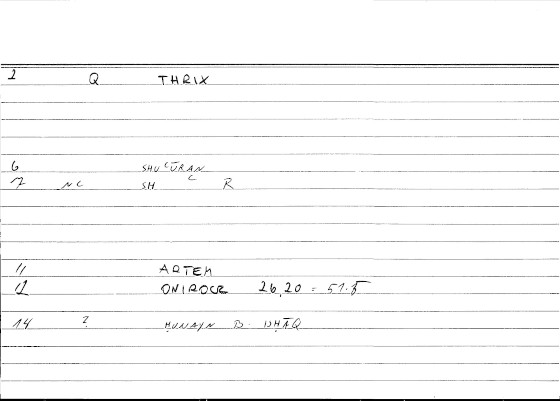 2 Q THRIX
6 SHUʿŪRAN
7 NC SH C R
11 ARTEM
12 ONIROCR 26,20 = 51.5
14 ? ḤUNAYN B. ISḤĀQ